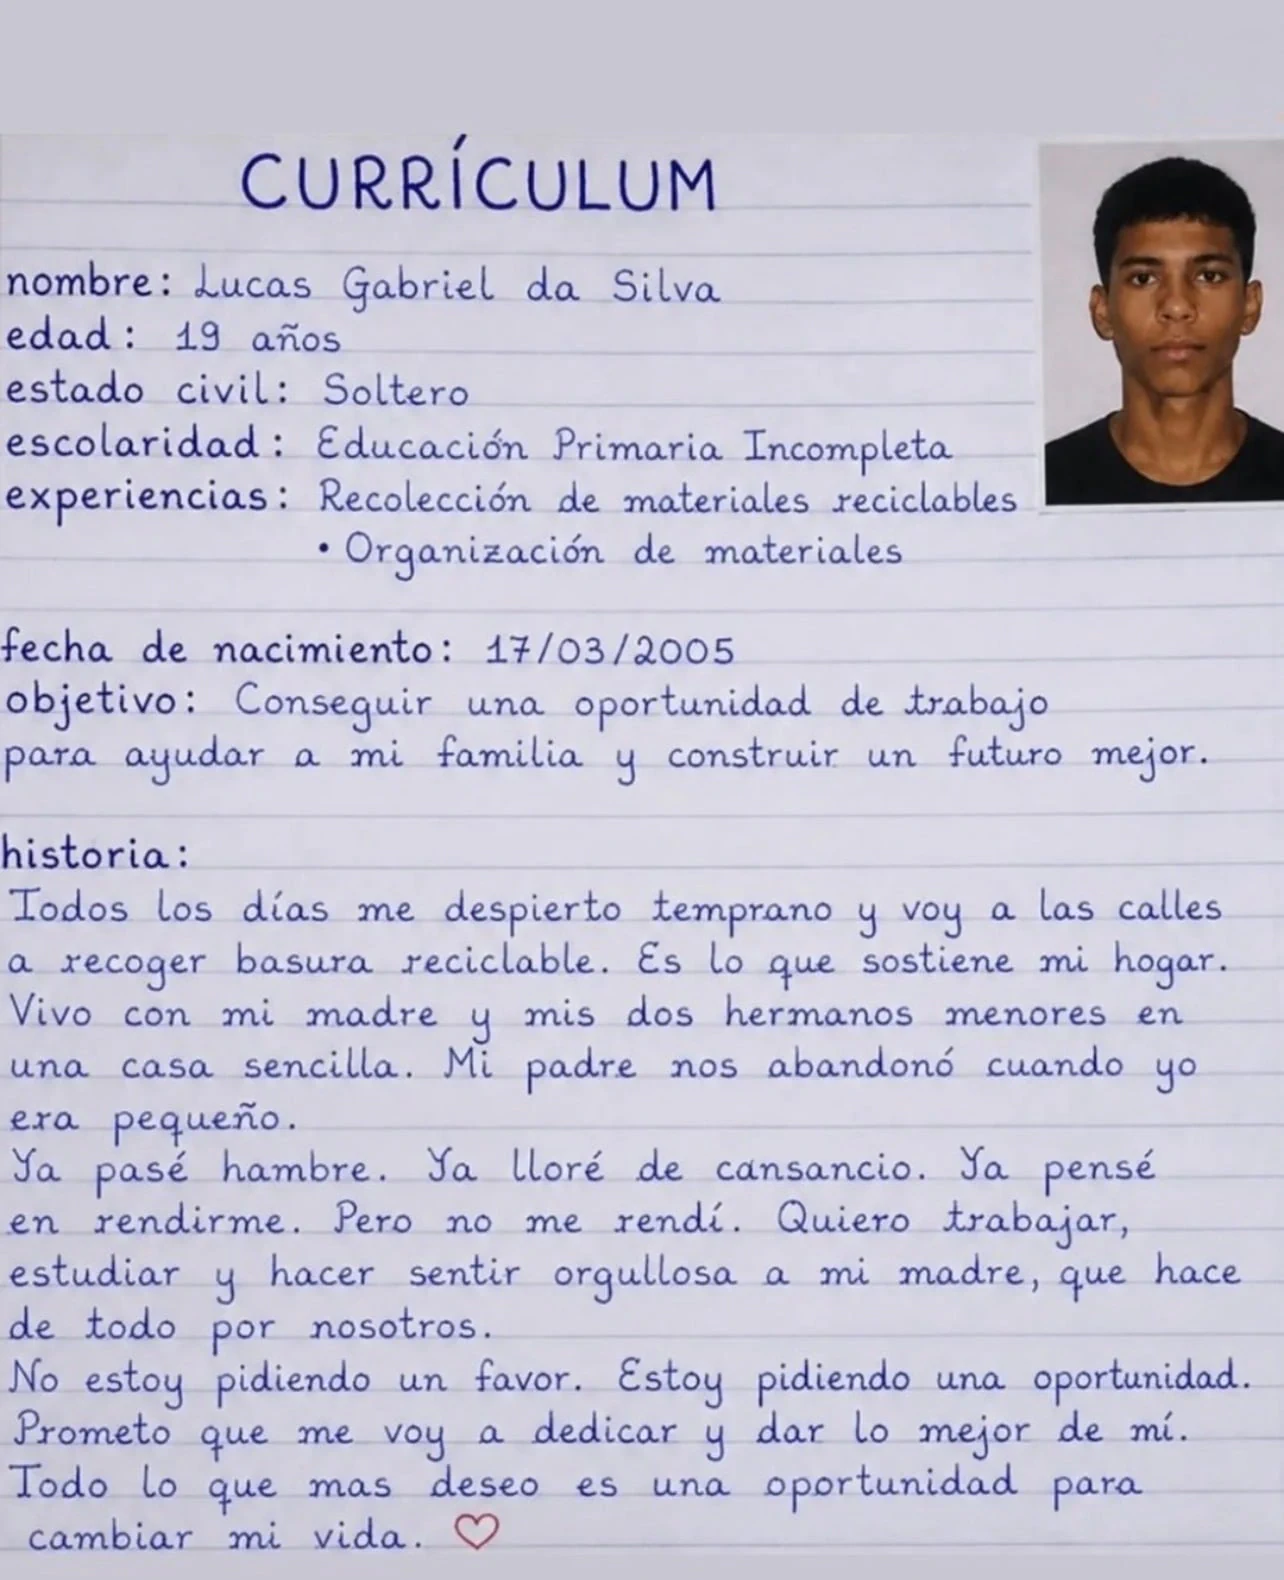 CURRÍCULUM
nombre: Lucas Gabriel da Silva
edad: 19 años
estado civil: Soltero
escolaridad: Educación Primaria Incompleta
experiencias: Recolección de materiales reciclables
• Organización de materiales
fecha de nacimiento: 17/03/2005
objetivo: Conseguir una oportunidad de trabajo
para ayudar a mi familia y construir un futuro mejor.
historia:
Todos los días me despierto temprano y voy a las calles
a recoger basura reciclable. Es lo que sostiene mi hogar.
Vivo con mi madre y mis dos hermanos menores en
una casa sencilla. Mi padre nos abandonó cuando yo
era pequeño.
Ya pasé hambre. Ya lloré de cansancio. Ya pensé
en rendirme. Pero no me rendí. Quiero trabajar,
estudiar y hacer sentir orgullosa a mi madre, que hace
de todo por nosotros.
No estoy pidiendo un favor. Estoy pidiendo una oportunidad.
Prometo que me voy a dedicar y dar lo mejor de mí.
Todo lo que mas deseo es una oportunidad para
cambiar mi vida. ♡